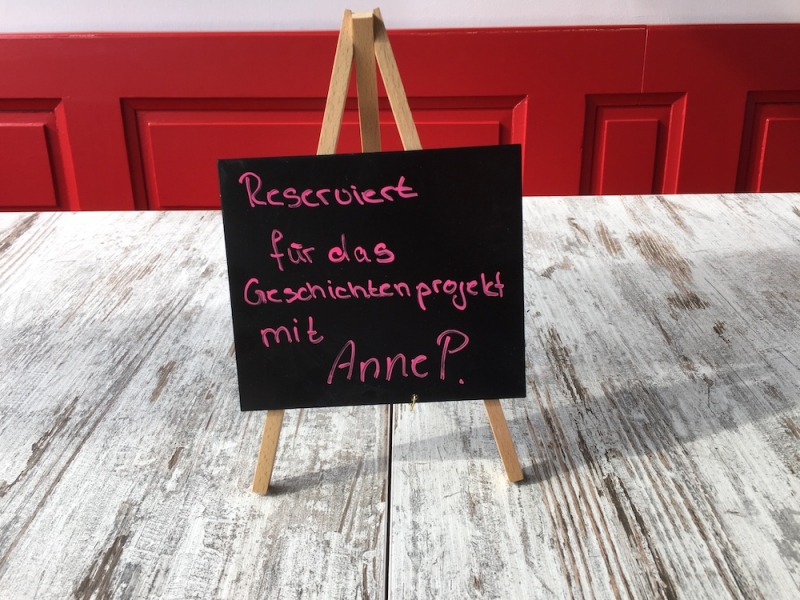 Reserviert
für das
Geschichtenprojekt
mit
Anne P.